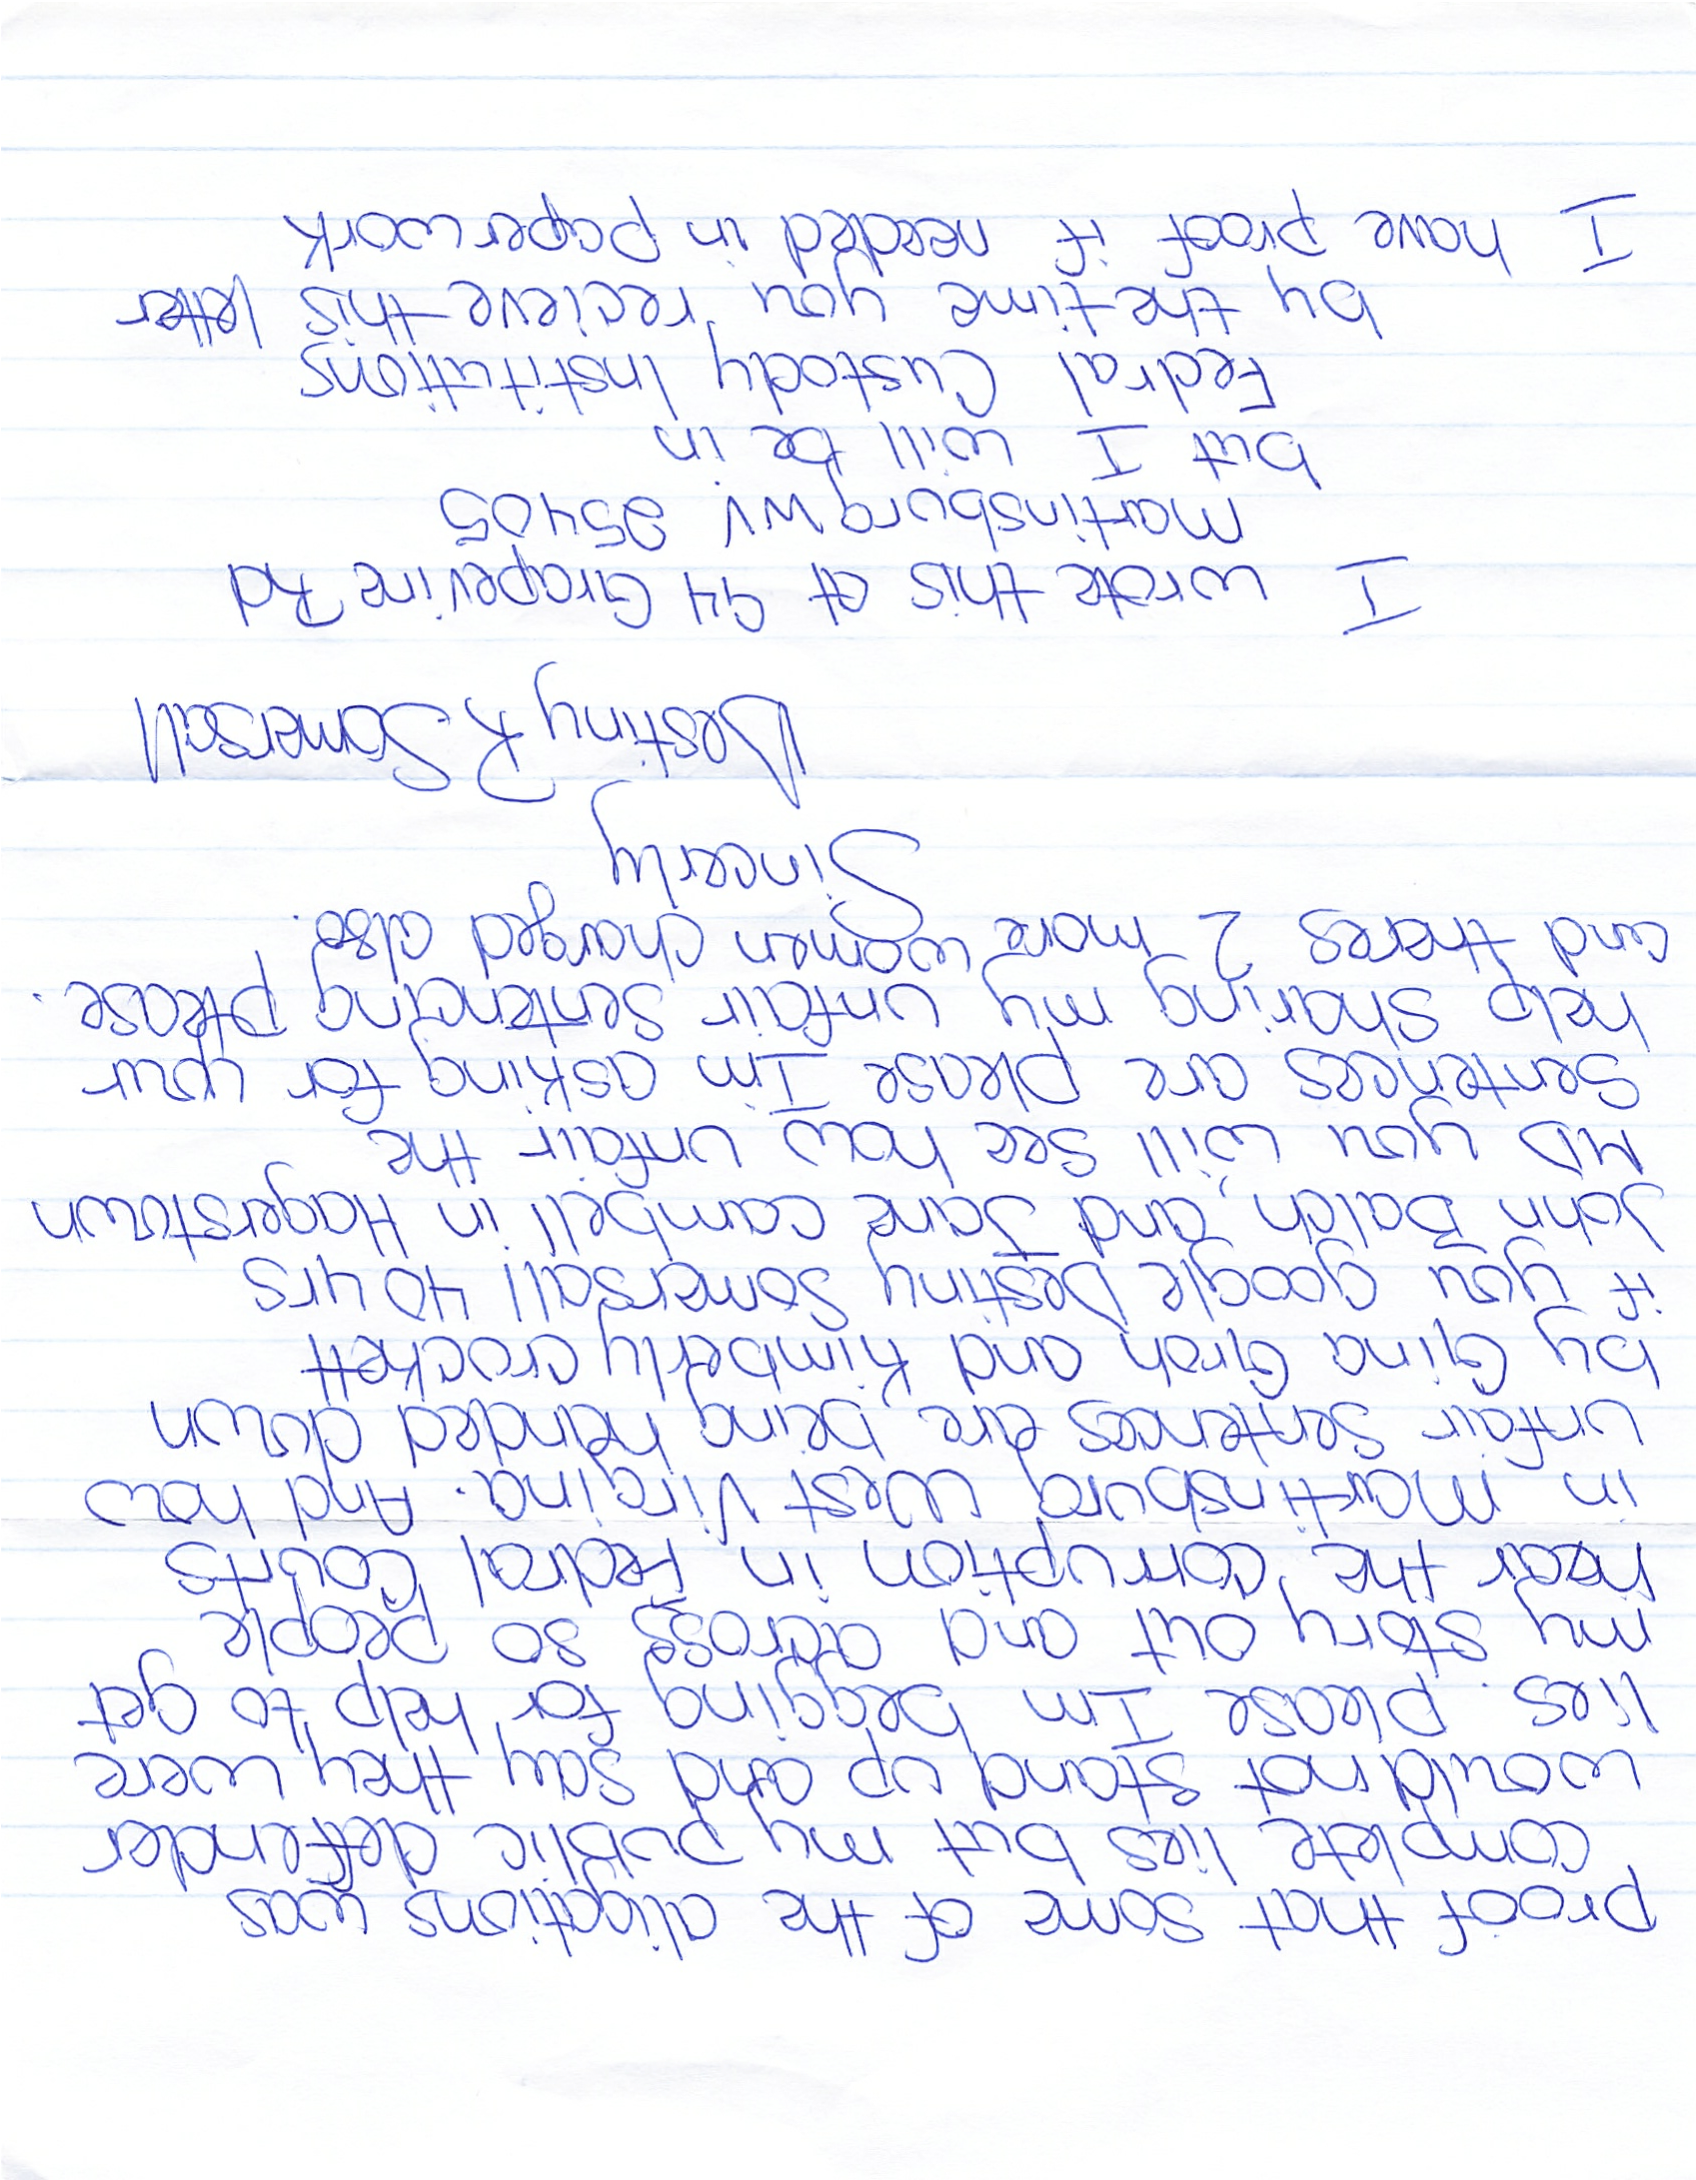 proof that some of the aligations was
complete lies but my public deffender
would not stand up and say they were
lies. please I'm begging for help to get
my story out and across so people
hear the corruption in Fedral Courts
in Martinsburg West Virgina. And how
unfair sentences are being handed down
by Gina Groh and Kimberly crockett
if you google Destiny Somersall 40 yrs
John Balch, and Jane cambell in Hagerstown
MD you will see how unfair the
sentences are please I'm asking for your
help sharing my unfair sentencing please.
and theres 2 more women charged also.
Sincerly
Destiny R Somersall
I wrote this at 94 Grapevine Rd
Martinsburg WV. 25405
but I will be in
Fedral Custody Institutions
by the time you recieve this letter
I have proof if needed in paperwork